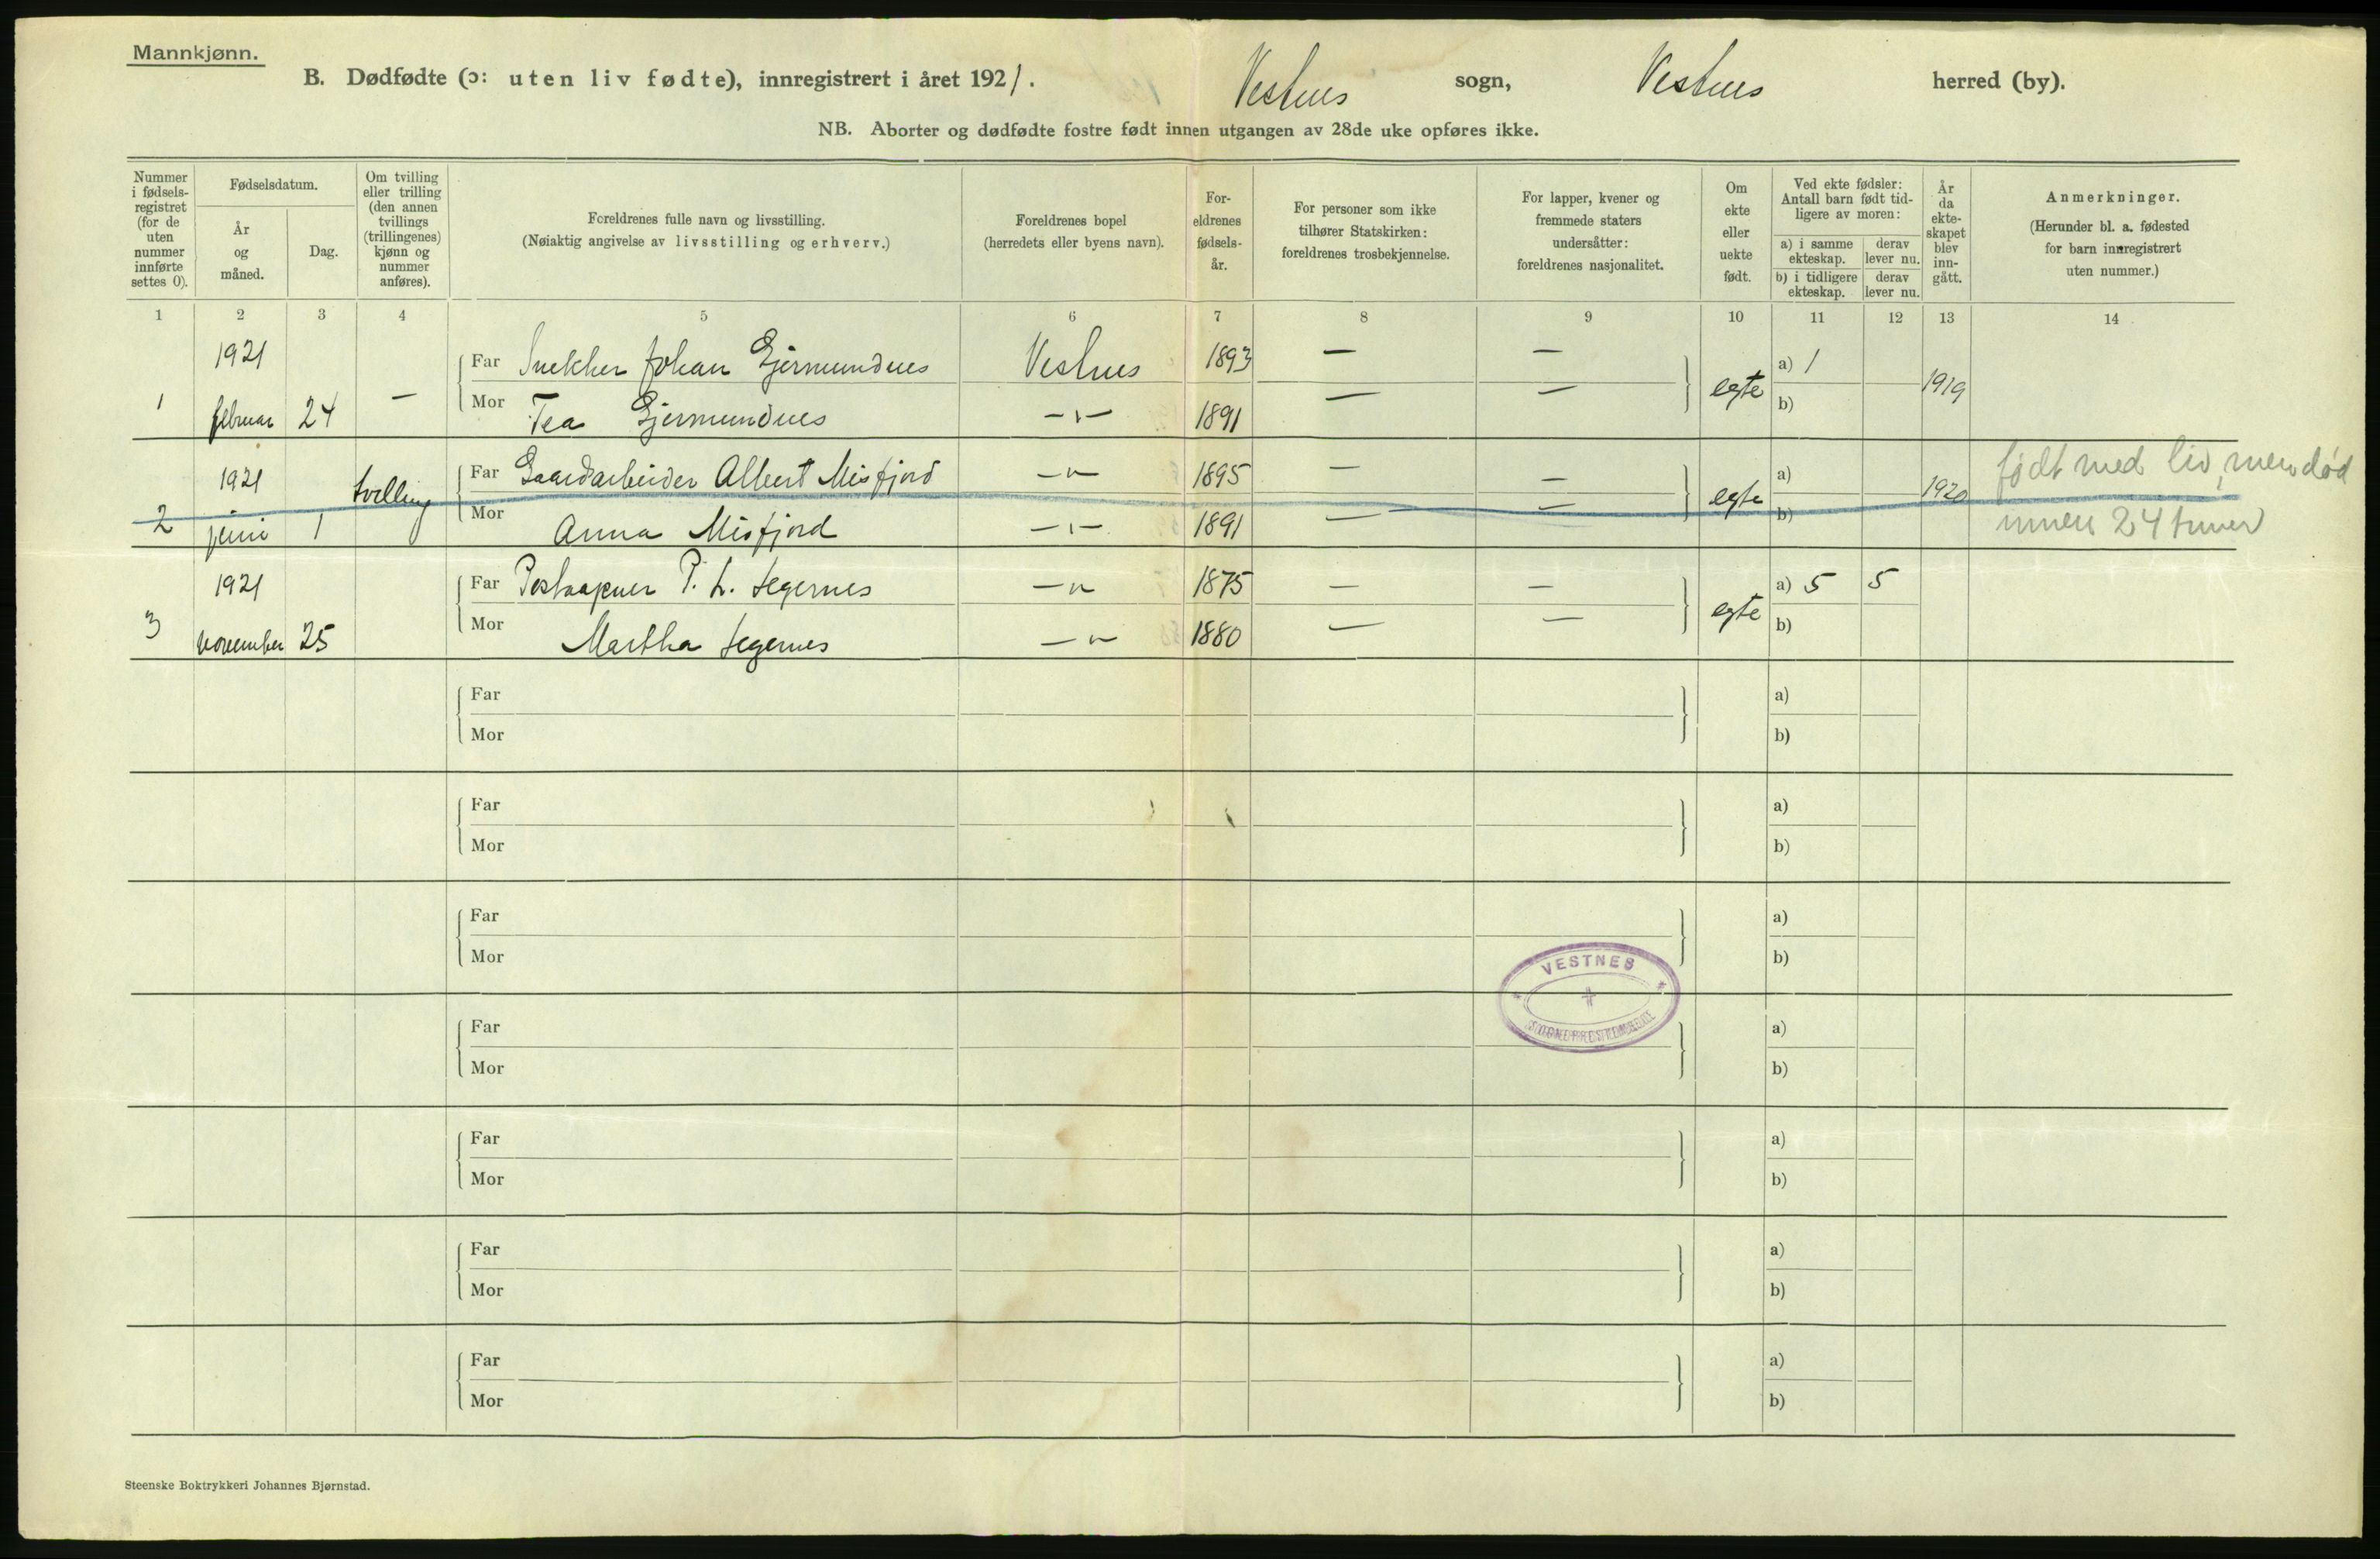 Mannkjønn.
B. Dødfødte (ɔ: uten liv fødte), innregistrert i året 1921. Vestnes sogn, Vestnes herred (by).
NB. Aborter og dødfødte fostre født innen utgangen av 28de uke opføres ikke.
Nummer i fødsels-registret (for de uten nummer innførte settes 0).
Fødselsdatum.
År og måned.
Dag.
Om tvilling eller trilling (den annen tvillings (trillingenes) kjønn og nummer anføres).
Foreldrenes fulle navn og livsstilling.
(Nøiaktig angivelse av livsstilling og erhverv.)
Foreldrenes bopel
(herredets eller byens navn).
For-eldrenes fødsels-år.
For personer som ikke tilhører Statskirken: foreldrenes trosbekjennelse.
For lapper, kvener og fremmede staters undersåtter: foreldrenes nasjonalitet.
Om ekte eller uekte født.
Ved ekte fødsler: Antall barn født tid-ligere av moren:
a) i samme ekteskap.
derav lever nu.
b) i tidligere ekteskap.
derav lever nu.
År da ekte-skapet blev inn-gått.
Anmerkninger.
(Herunder bl. a. fødested for barn innregistrert uten nummer.)
1 2 3 4 5 6 7 8 9 10 11 12 13 14
1921 Far Snekker Johan Gjermundnes Vestnes 1893 — — a) 1
1 februar 24 — Mor Tea Gjermundnes —„— 1891 — — egte b) 1919
1921 tvilling Far Gaardarbeider Albert Misfjord —„— 1895 — — a) 1920 født med liv, men død
2 juni 1 Mor Anna Misfjord —„— 1891 — — egte b) innen 24 timer
1921 Far Postaapner P. L. Segernes —„— 1875 — — a) 5 5
3 november 25 Mor Martha Segernes —„— 1880 — — egte b)
Far a)
Mor b)
Far a)
Mor b)
Far a)
Mor b)
VESTNES
Far a)
Mor b)
Far a)
Mor b)
Far a)
Mor b)
Far a)
Mor b)
Steenske Boktrykkeri Johannes Bjørnstad.